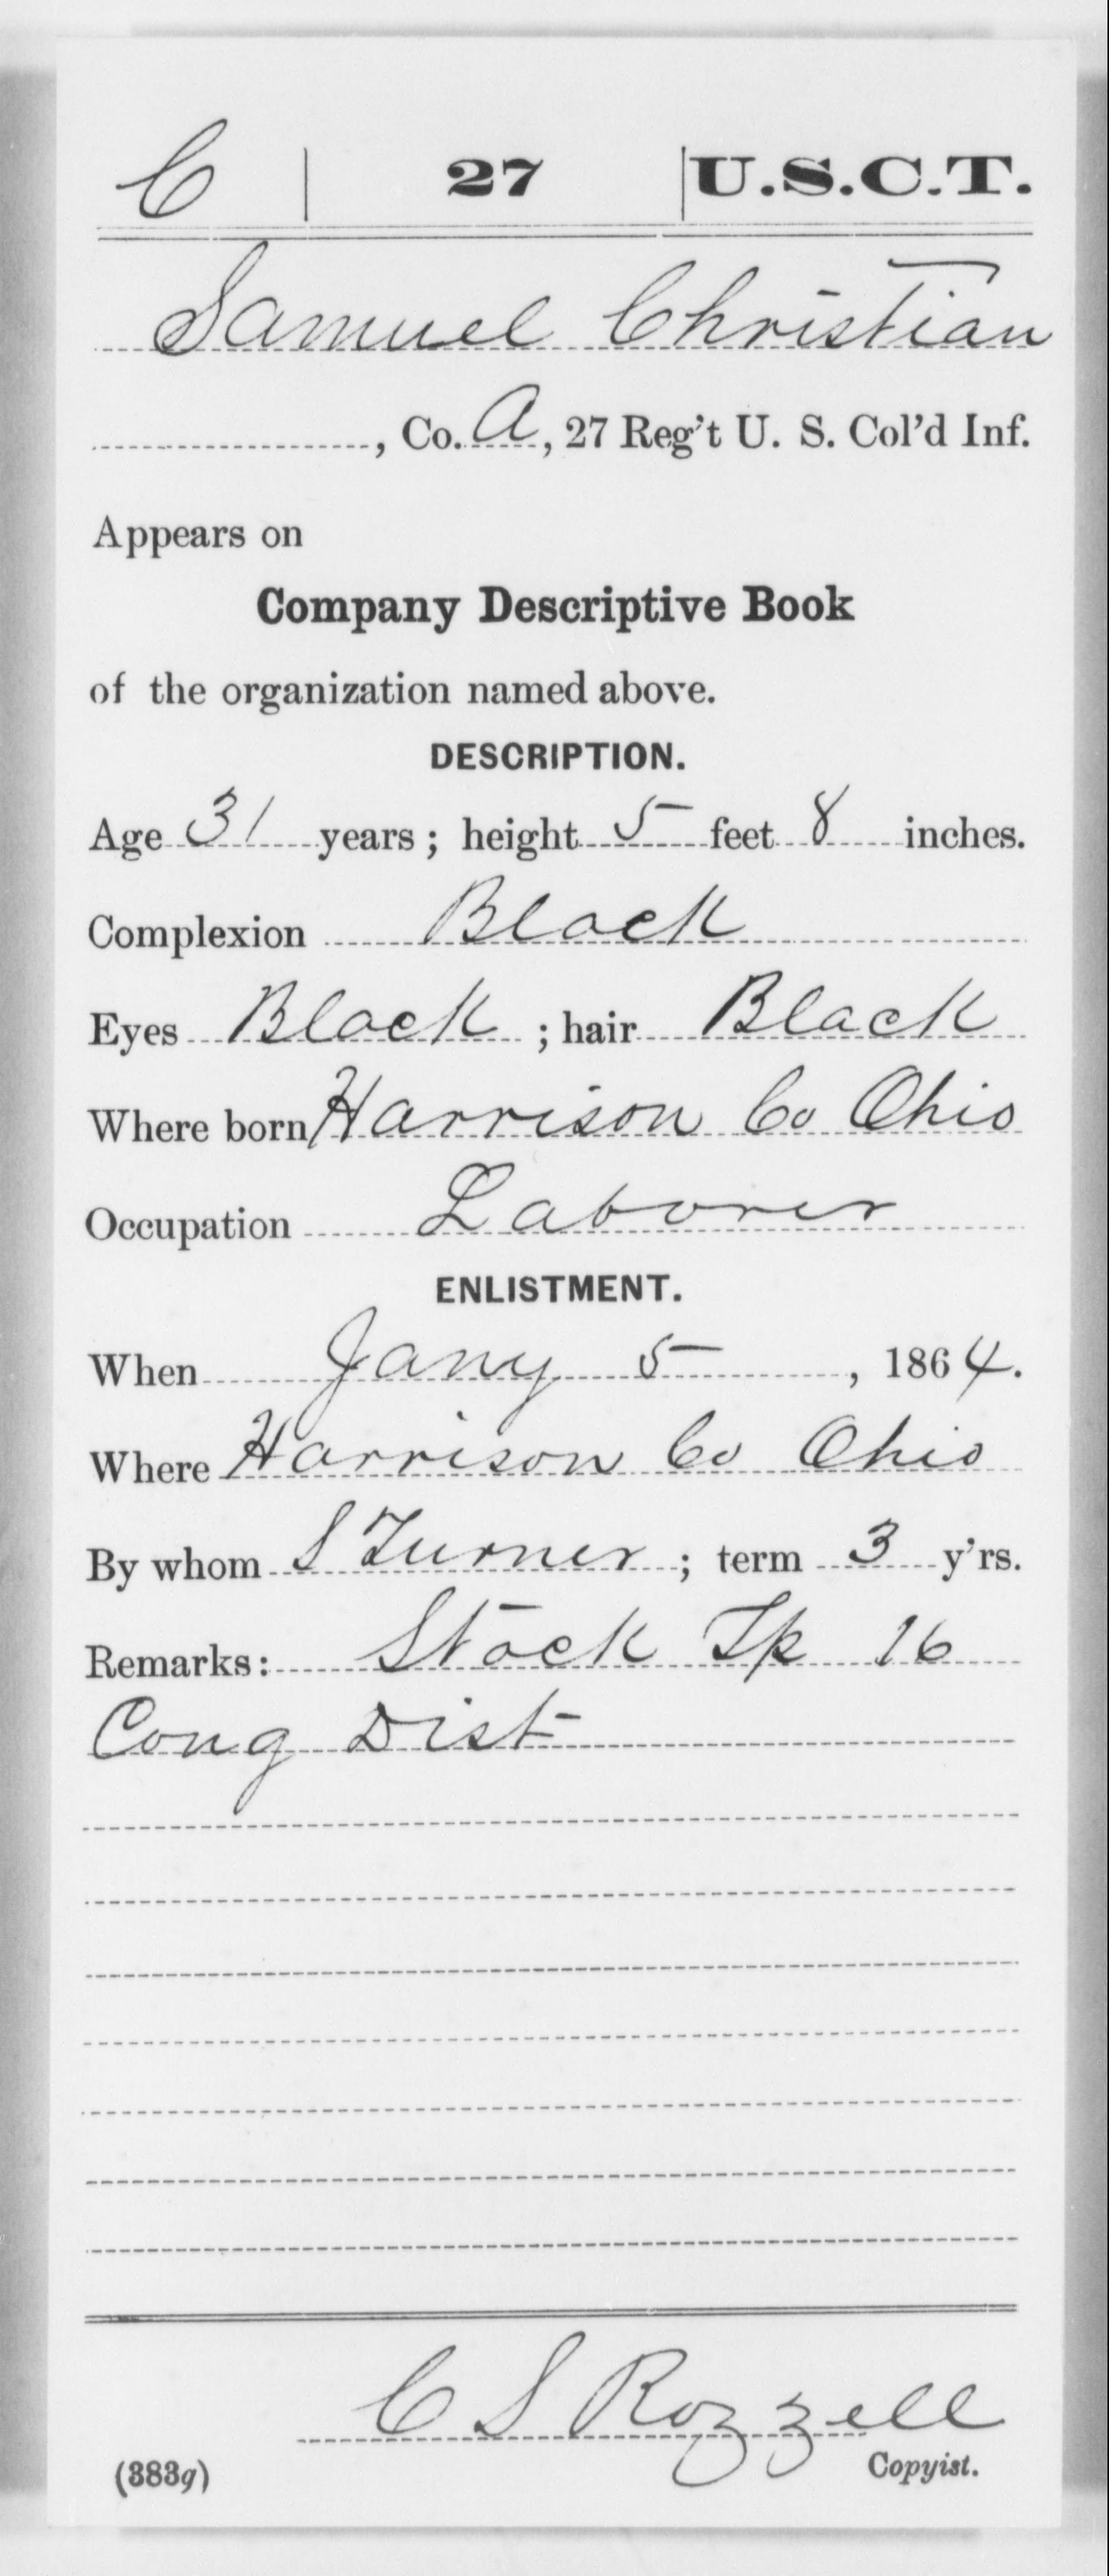 C | 27 | U.S.C.T.
Samuel Christian
, Co. A, 27 Reg't U. S. Col'd Inf.
Appears on
Company Descriptive Book
of the organization named above.
DESCRIPTION.
Age 31 years; height 5 feet 8 inches.
Complexion Black
Eyes Black ; hair Black
Where born Harrison Co Ohio
Occupation Laborer
ENLISTMENT.
When Jany 5, 1864.
Where Harrison Co Ohio
By whom S Turner ; term 3 y'rs.
Remarks: Stock Tp 16
Cong Dist
C S Rozzell
(383g) Copyist.